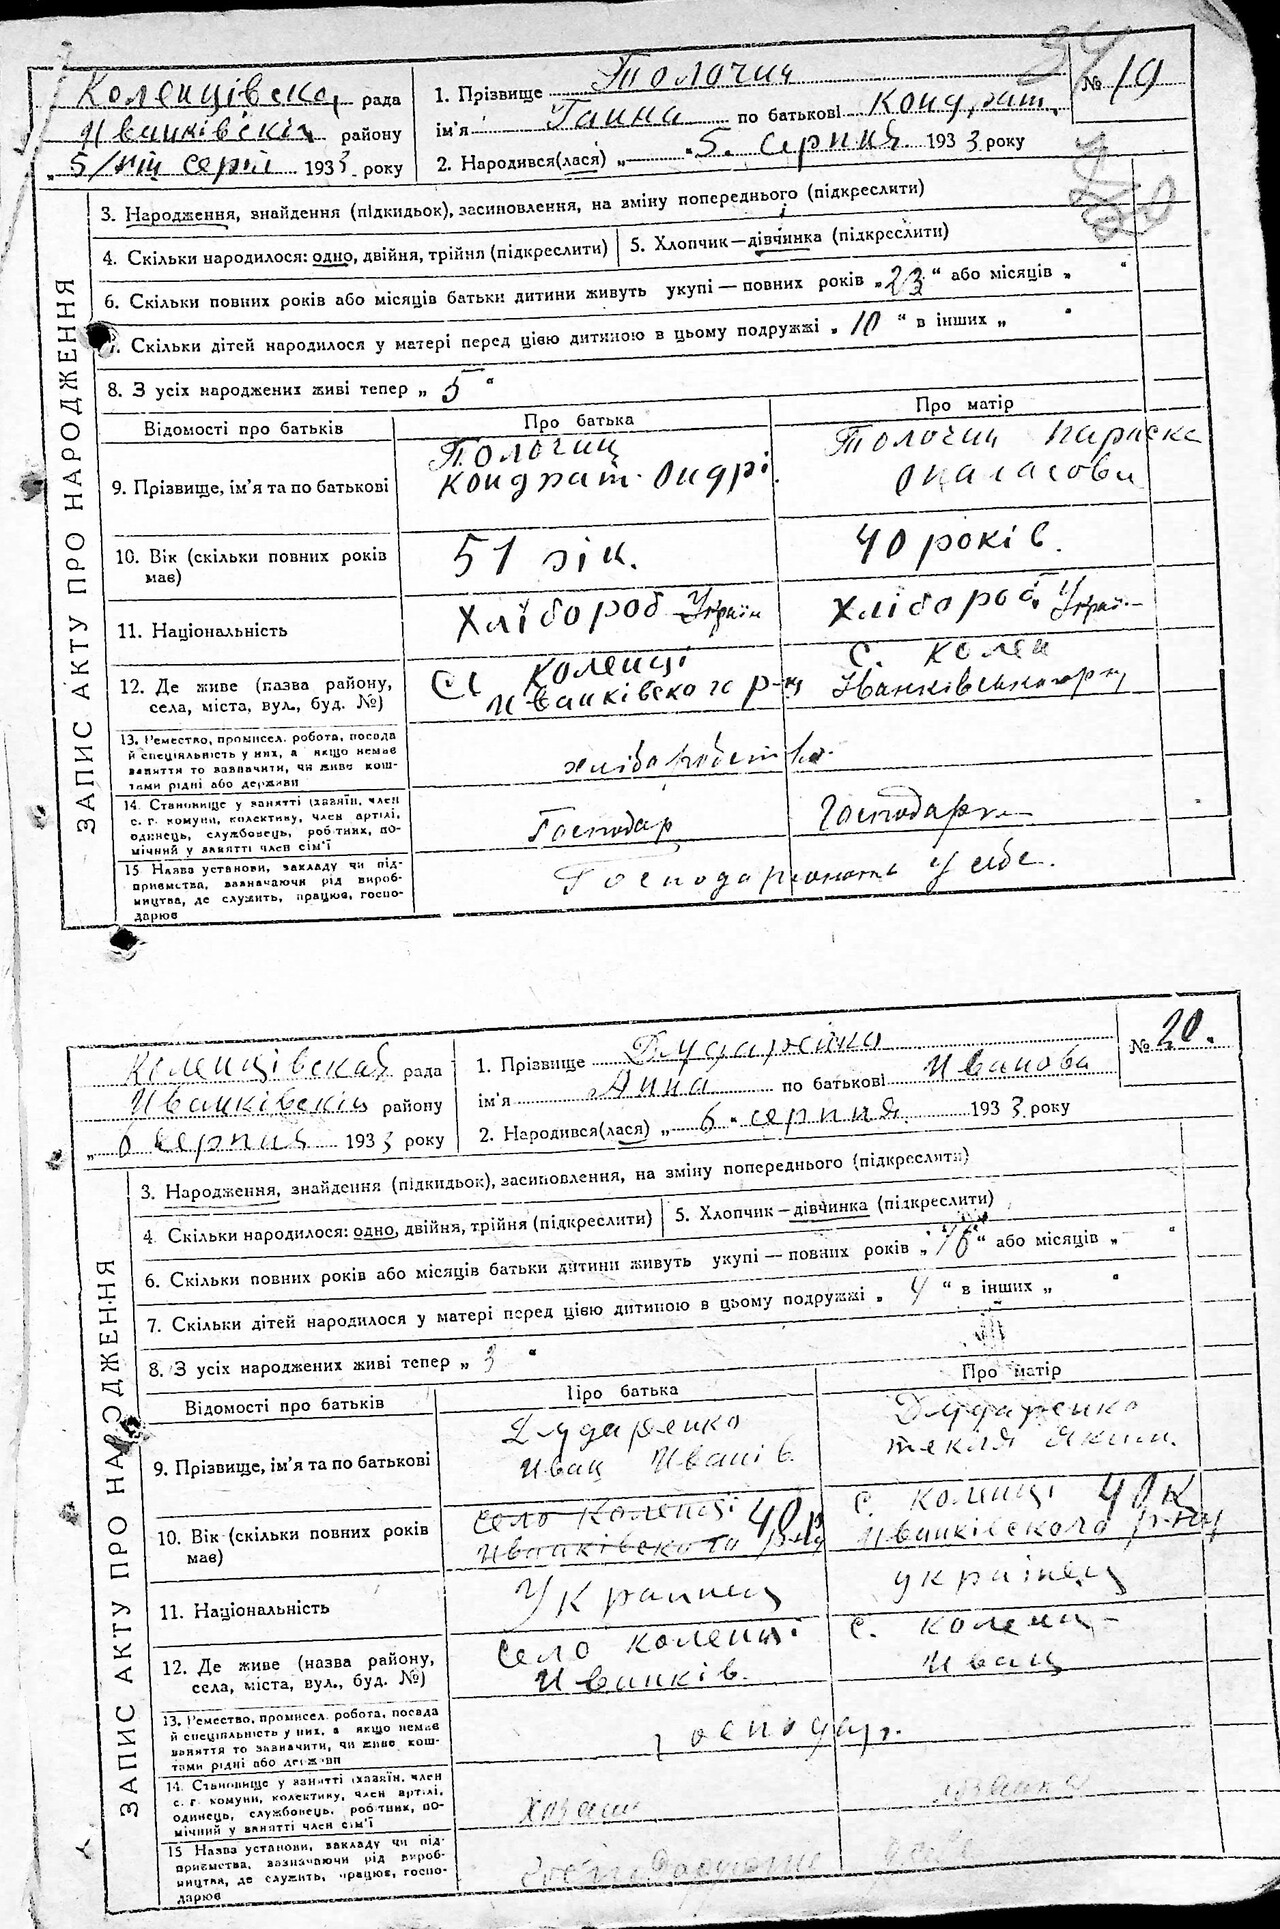 Коленцівска рада
Иванківскій району
„5/VIII серпн 1933 року
1. Прізвище Толочин
ім'я Ганна по батькові Кондрат.
2. Народився(лася) „5. серпня 1933 року
№ 19
ЗАПИС АКТУ ПРО НАРОДЖЕННЯ
3. Народження, знайдення (підкидьок), засиновлення, на зміну попереднього (підкреслити)
4. Скільки народилося: одно, двійня, трійня (підкреслити)
5. Хлопчик—дівчинка (підкреслити)
6. Скільки повних років або місяців батьки дитини живуть укупі — повних років „23“ або місяців „ “
7. Скільки дітей народилося у матері перед цією дитиною в цьому подружжі „10“ в інших „ “
8. З усіх народжених живі тепер „5“
Відомості про батьків
Про батька
Про матір
9. Прізвище, ім'я та по батькові
Толочин
Кондрат Ондрі.
Толочин Параска
Опанасови
10. Вік (скільки повних років
має)
51 рік.
40 років.
11. Національність
Хлібороб Україн
Хлібороб. Україн
12. Де живе (назва району,
села, міста, вул., буд. №)
С. Коленці
Иванківского р-ну
с. Колен
Іванківського р-ну
13. Ремество, промисел, робота, посада
й спеціяльність у них, а якщо немає
заняття то зазначити, чи живе кош-
тами рідні або держави
хліборобство
14. Становище у занятті (хазяїн, член
с. г. комуни, колективу, член артілі,
одинець, службовець, робітник, по-
мічний у занятті член сім'ї
Господар
Господарка
15 Назва установи, закладу чи під-
приємства, зазначаючи рід вироб-
ництва, де служить, працює, госпо-
дарює
Господарюють у себе.
Коленцівская рада
Иванківскій району
„6 серпня 1933 року
1. Прізвище Дударейко
ім'я Анна по батькові Иванова
2. Народився(лася) „6“ серпня 1933 року
№ 20.
ЗАПИС АКТУ ПРО НАРОДЖЕННЯ
3. Народження, знайдення (підкидьок), засиновлення, на зміну попереднього (підкреслити)
4. Скільки народилося: одно, двійня, трійня (підкреслити)
5. Хлопчик—дівчинка (підкреслити)
6. Скільки повних років або місяців батьки дитини живуть укупі — повних років „16“ або місяців „ “
7. Скільки дітей народилося у матері перед цією дитиною в цьому подружжі „4“ в інших „ “
8. З усіх народжених живі тепер „3“
Відомості про батьків
Про батька
Про матір
9. Прізвище, ім'я та по батькові
Дударенко
Иван Иванів.
Дударенко
текля Яким.
10. Вік (скільки повних років
має)
село Коленці 40 р
Иванківського р-ну
с. Коленці 40 к
Иванківского р-ну
11. Національність
Украинец
українец
12. Де живе (назва району,
села, міста, вул., буд. №)
Село коленці
Иванків.
с. Колени-
Иван
13. Ремество, промисел, робота, посада
й спеціяльність у них, а якщо немає
заняття то зазначити, чи живе кош-
тами рідні або держави
господар.
14. Становище у занятті (хазяїн, член
с. г. комуни, колективу, член артілі,
одинець, службовець, робітник, по-
мічний у занятті член сім'ї
Хазяин
15 Назва установи, закладу чи під-
приємства, зазначаючи рід вироб-
ництва, де служить, працює, госпо-
дарює
у себе